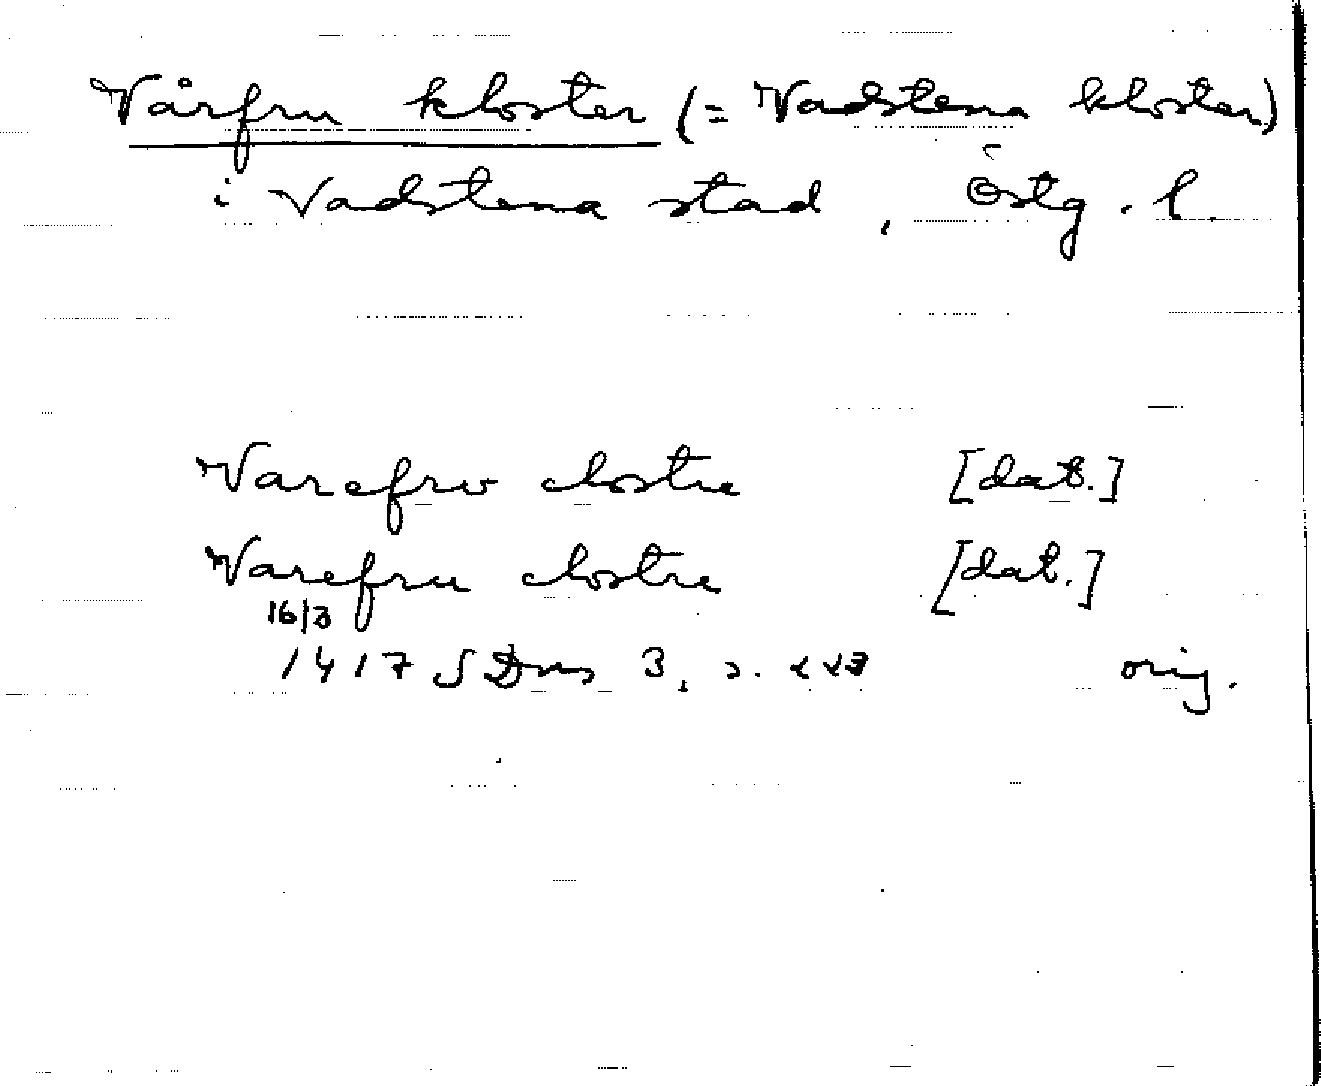 Vårfru kloster (= Vadstena kloster)
i Vadstena stad, Östg. l.
Varefrw clostre [dat.]
Varefru clostre [dat.]
16/3
1417 SDns 3, s. 223 orig.